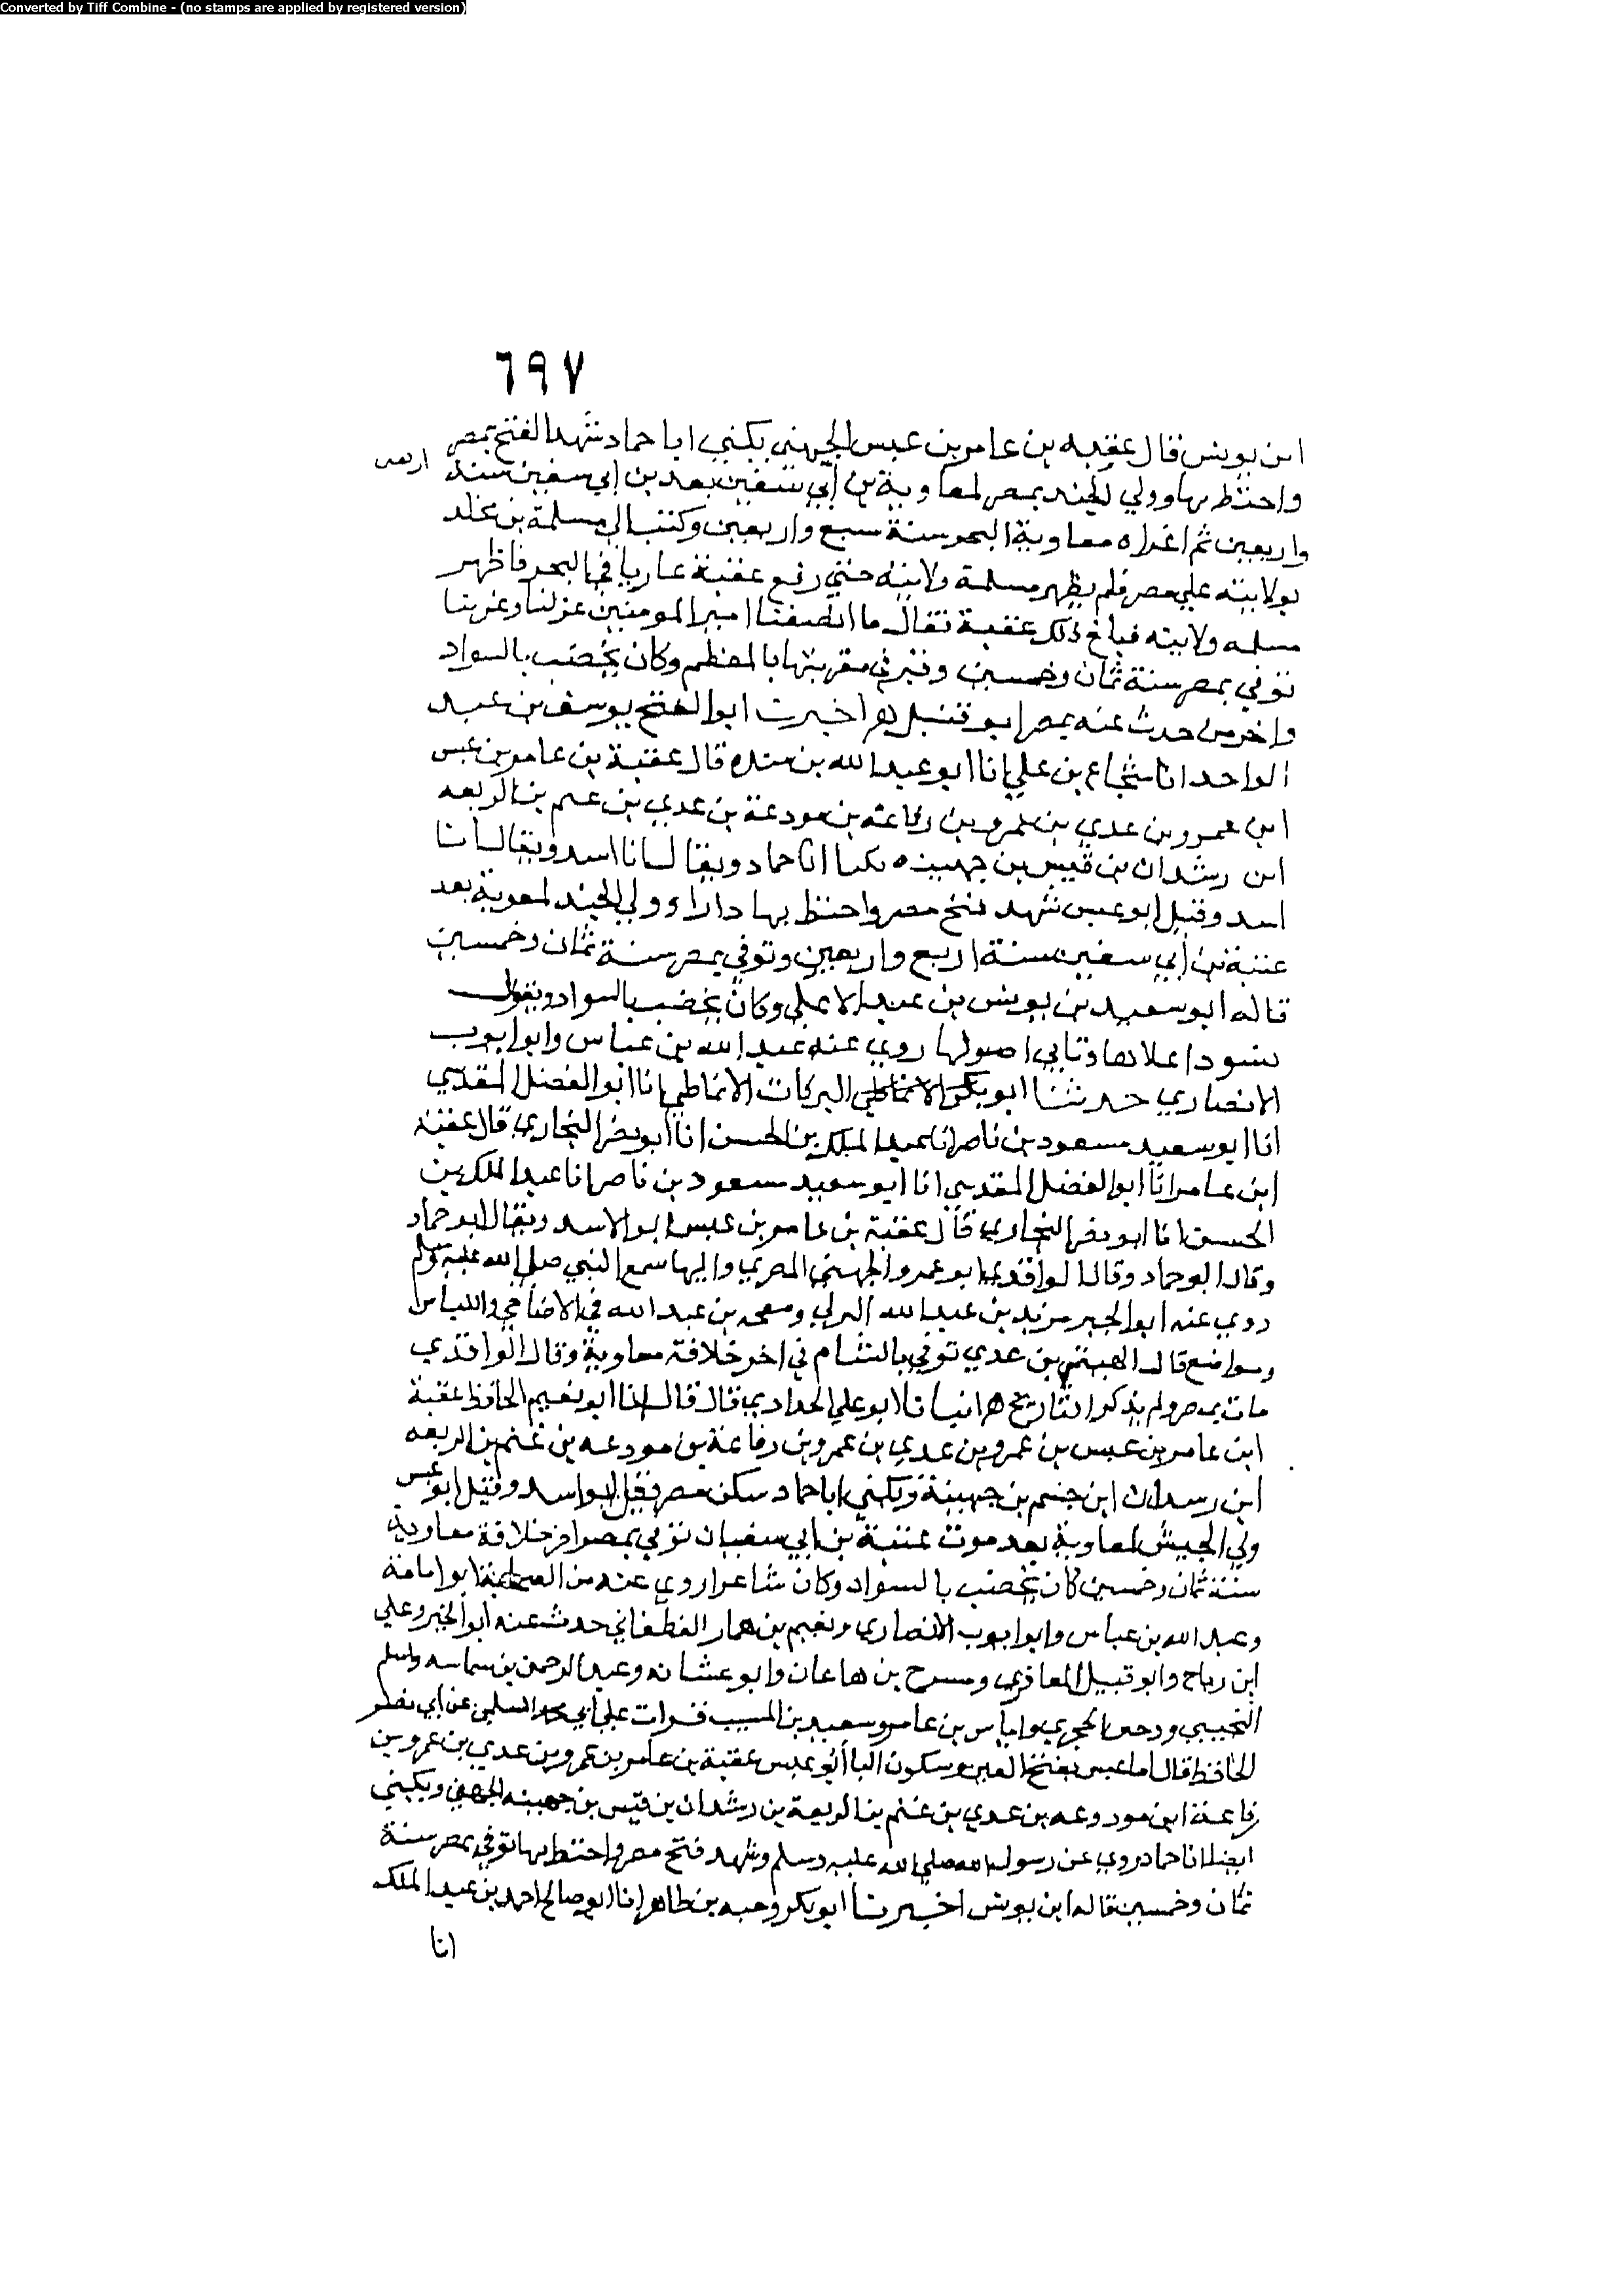 Converted by Tiff Combine - (no stamps are applied by registered version)
٦٩٧
ابن يونس قال عقبه بن عامر بن عبس الجهني يكني ابا حماد شهد الفتح بمصر
واختط بها وولي الجند بمصر لمعاوية بن أبي سفين بعد بن ابي سفين سنة اربعى
واربعين ثم اغزاه معاوية البحر سنة سبع واربعين وكتب الي مسلمة بن مخلد
بولايته علي مصر فلم يظهر مسلمة ولايته حتي رفع عقبة غازيا في البحر فاظهر
مسلمه ولايته فبلغ ذلك عقبة فقال ما انصفنا امير المومنين عزلنا وغربنا
توفي بمصر سنة ثمان وخمسين وقبر في مقبرتها بالمقطم وكان يخضب بالسواد
واخر من حدث عنه بمصر ابو قبيل اخبرت ابو الفتح يوسف بن عبد
الواحد انا شجاع بن علي انا ابو عبد الله بن منده قال عقبة بن عامر بن عبس
ابن عمرو بن عدي بن عمرو بن رفاعة بن مودعة بن عدي بن غنم بن الربعه
ابن رشدان بن قيس بن جهينه يكنا ابا حماد ويقال ابا اسد ويقال ابا
اسد وقيل ابو عبس شهد فتح مصر واختط بها دارا وولي الجند لمعوية بعد
عتبة بن أبي سفين سنة اربع واربعين وتوفي بمصر سنة ثمان وخمسين
قاله ابو سعيد بن يونس بن عبد الاعلي وكان يخضب بالسواد ويقول
نسود اعلاها وتابي اصولها روي عنه عبد الله بن عباس وابو ايوب
الانصاري حدثنا ابو البركات الانماطي انا ابو الفضل المقدسي
انا ابو سعيد مسعود بن ناصر انا عبد الملك بن الحسن انا أبو نصر البخاري قال عقبة
ابن عامر انا ابو الفضل المقدسي انا ابو سعيد مسعود بن ناصر انا عبد الملك بن
الحسن انا ابو نصر البخاري قال عقبة بن عامر بن عبس ابو الاسد ويقال ابو حماد
وقال ابو حماد وقال الواقدي ابو عمرو الجهني المصري واليها سمع النبي صلي الله عليه وسلم
روي عنه ابو الخير مرثد بن عبد الله اليزني وبعجه بن عبد الله في الاضاحي واللباس
ومواضع قال الهيثم بن عدي توفي بالشام في اخر خلافة معاوية وقال الواقدي
مات بمصر ولم يذكر التاريخ انبانا ابو علي الحداد قال قال انا ابو نعيم الحافظ عقبة
ابن عامر بن عبس بن عمرو بن عدي بن عمرو بن رفاعة بن مودعه بن غنم بن الربعه
ابن رسدان ابن جنسم بن جهينة ويكني ابا حماد سكن مصر فقيل ابو اسد وقيل ابو عبس
ولي الجيش لمعاوية بعد موت عتبة بن ابي سفيان توفي بمصر اخر خلافة معاوية
سنة ثمان وخمسين كان يخضب بالسواد وكان شاعرا روي عنه من الصحابة ابو امامة
وعبد الله بن عباس وابو ايوب الانصاري ونعيم بن همار الغطفاني حدث عنه ابو الخير وعلي
ابن رباح وابو قبيل المعافري ومسرح بن هاعان وابو عشانه وعبد الرحمن بن سماسه واسلم
التجيبي ودحين الحجري واياس بن عامر وسعيد بن المسيب قرات علي أبي محمد السلمي عن ابي نصر
الحافظ قال اما عبس بفتح العين وسكون البا أبو عبس عقبة بن عامر بن عمرو بن عدي بن عمرو بن
رفاعة ابن مودوعه بن عدي بن غنم بن الربعة بن رشدان بن قيس بن جهينه الجهني ويكني
ايضا ابا حماد روي عن رسول الله صلي الله عليه وسلم وشهد فتح مصر واختط بها توفي بمصر سنة
ثمان وخمسين قاله ابن يونس اخبرنا ابو بكر وجيه بن طاهر انا ابو صالح احمد بن عبد الملك
انا